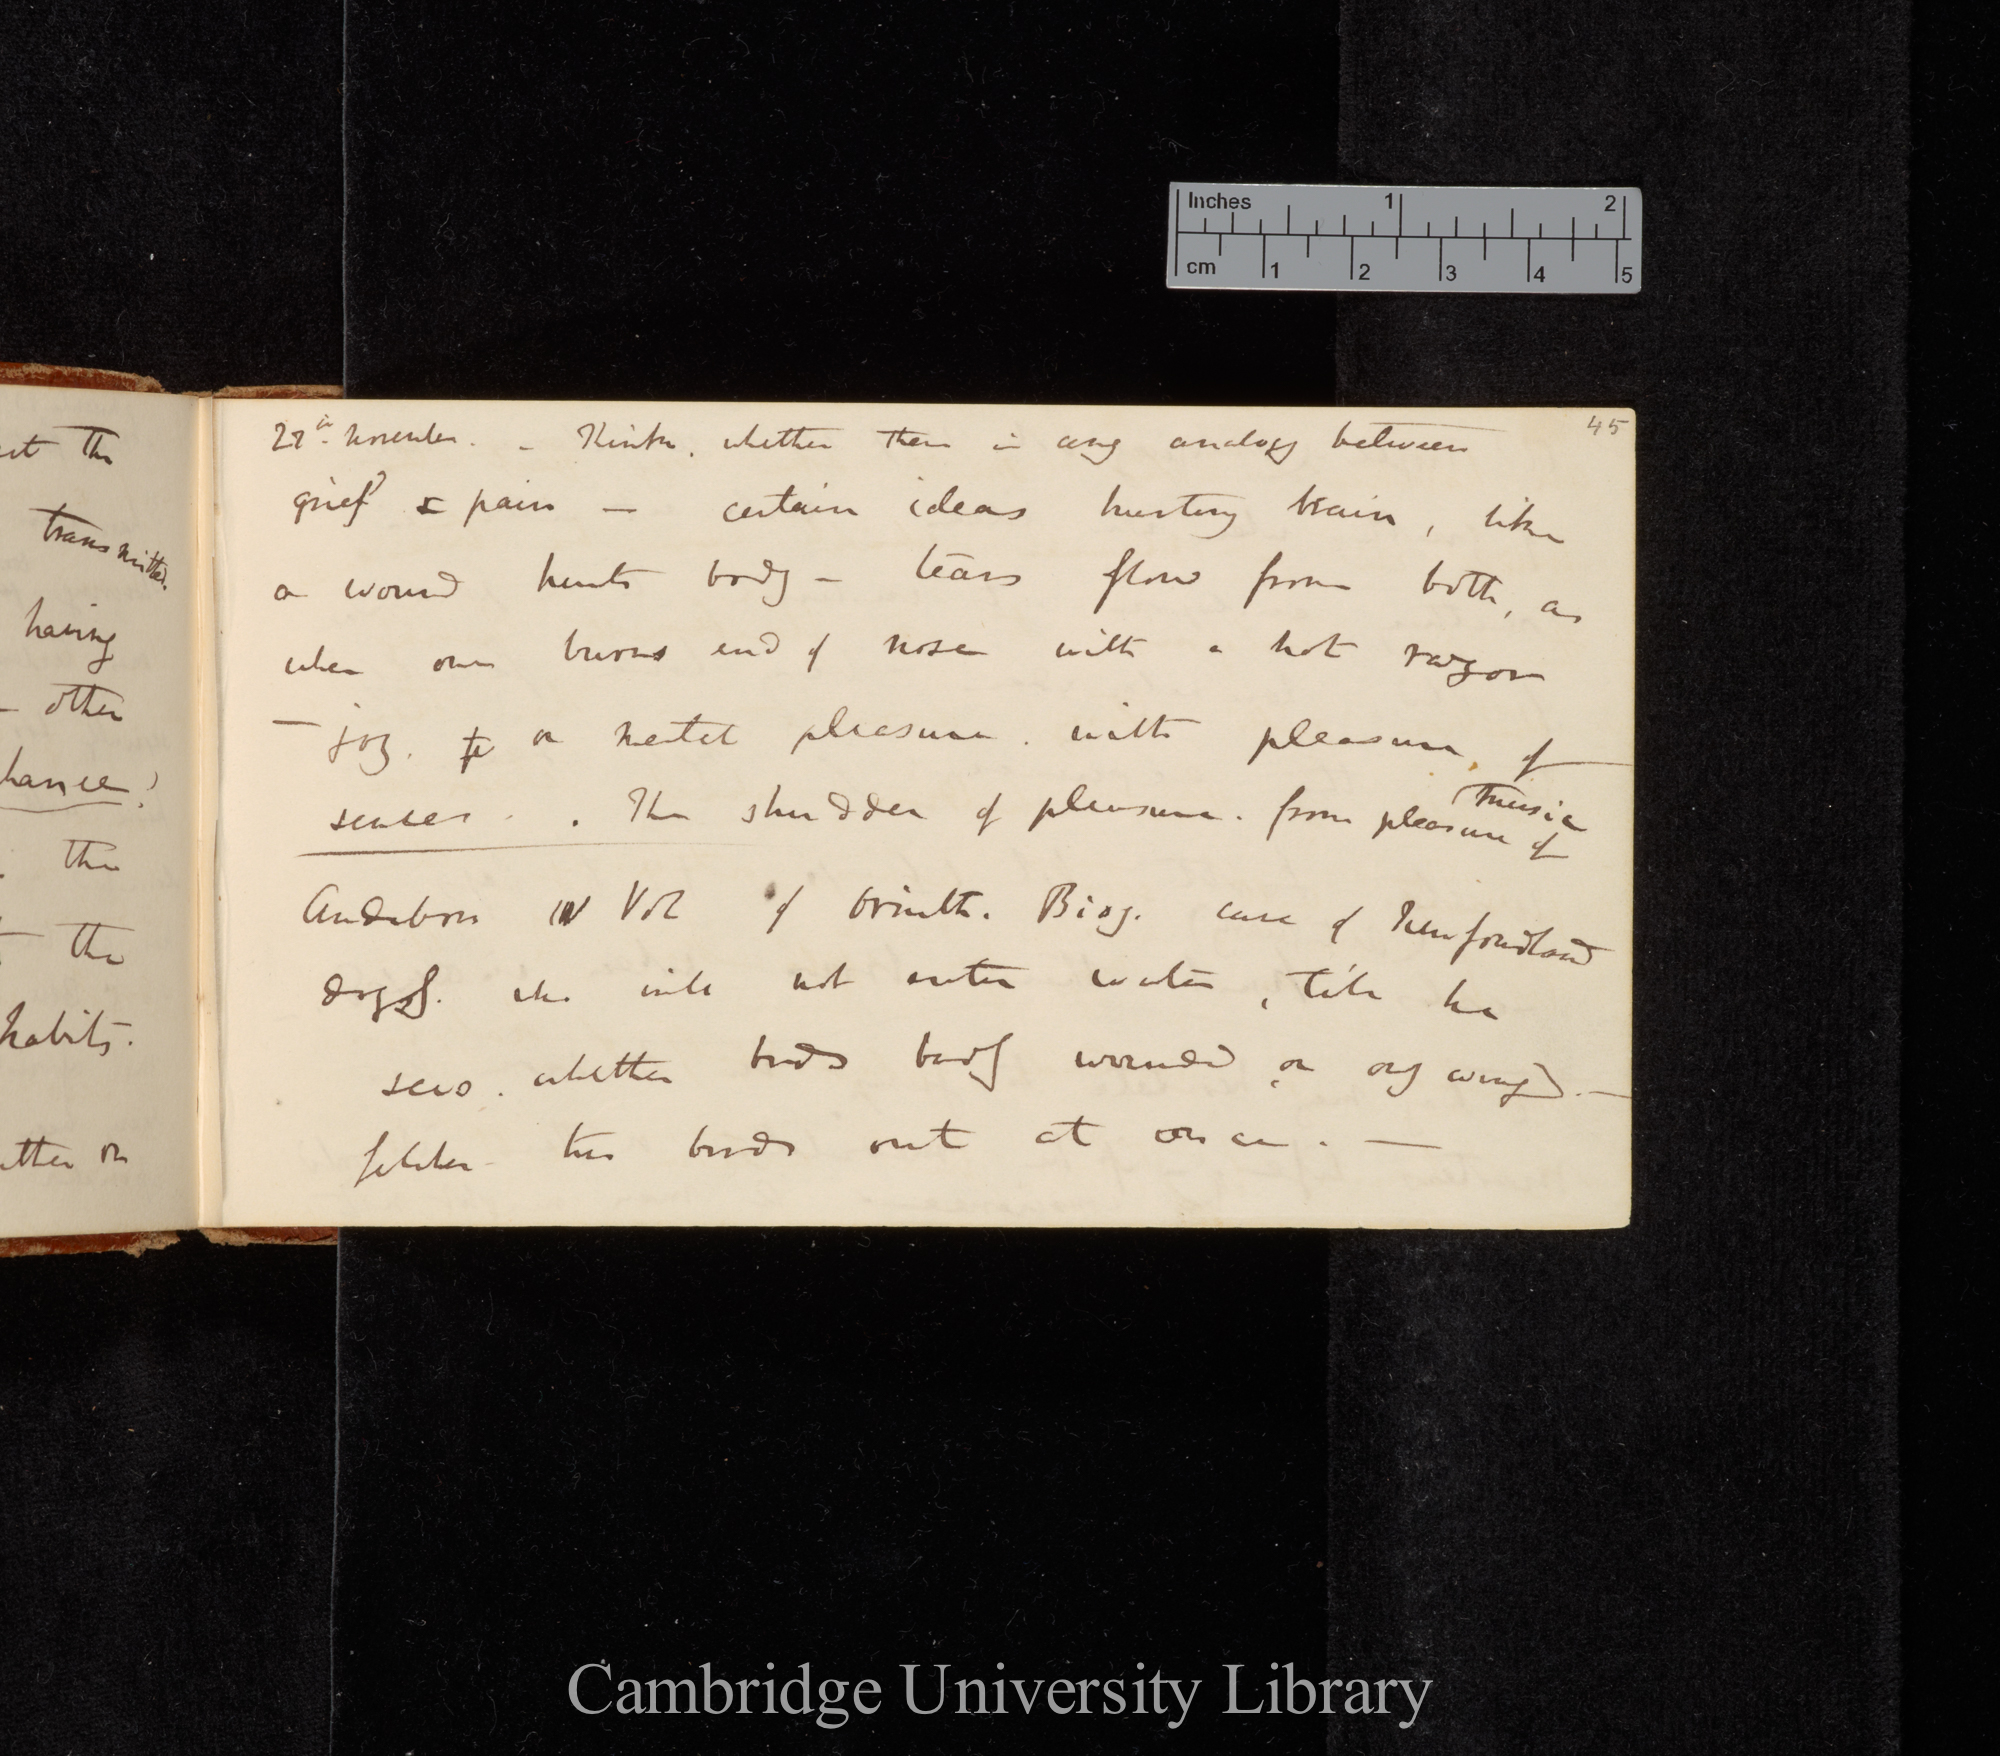 Inches 1 2
cm 1 2 3 4 5
45
27th November. – Think, whether there is any analogy between
grief & pain — certain ideas hurting brain, like
a wound hurts body – tears flow from both, as
when one burns end of nose with a hot razor
— joy. or mental pleasure. with pleasure of
senses. . The shudder of pleasure. from pleasure of music
Audubon IV Vol of Ornith. Biog. case of Newfoundland
dogs. who will not enter water, till he
sees. whether birds badly wounded, or only winged. —
fetches the birds out at once. —
the
transmitted.
having
– other
chance!
. the
— the
habits.
on
Cambridge University Library